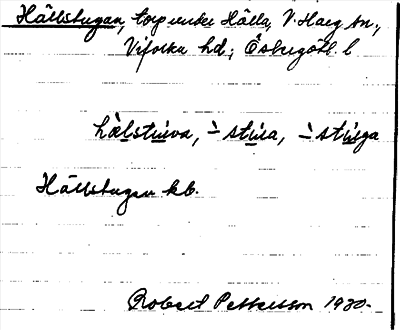 Hällstugan, torp under Hälla, V. Harg sn.,
Vifolka hd; Östergötl. l
hàlstuva, -̀ stua, -̀ stuga
Hällstugan kb.
Robert Pettersson 1930-